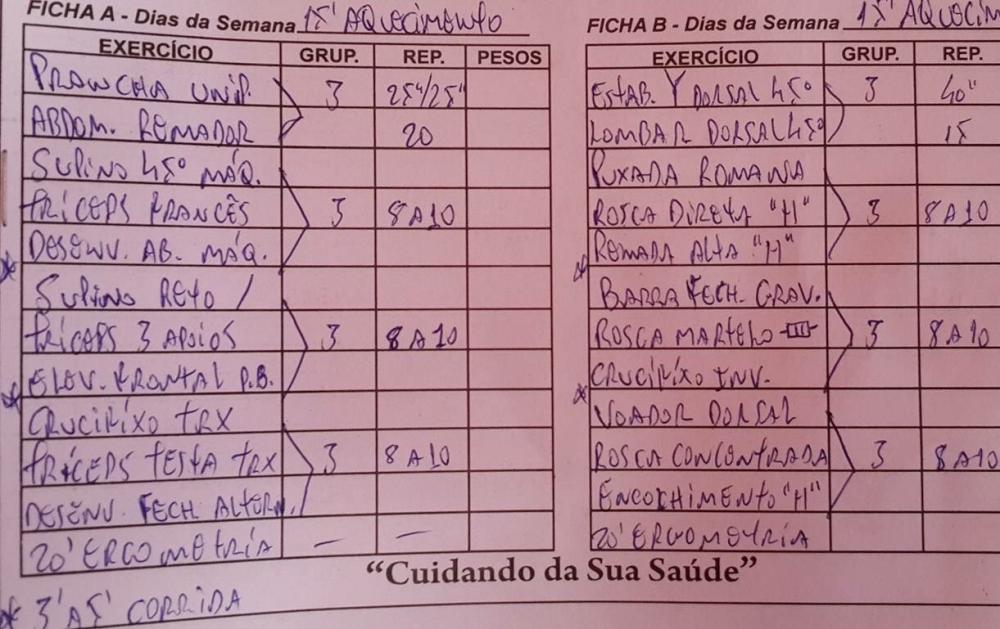 FICHA A - Dias da Semana 15' AQUECIMENTO
EXERCÍCIO GRUP. REP. PESOS
PRANCHA UNIP. 3 25"/25"
ABDOM. REMADOR 20
SUPINO 45º MÁQ.
TRÍCEPS FRANCÊS 3 8 A 10
DESENV. AB. MÁQ.
SUPINO RETO /
TRÍCEPS 3 APOIOS 3 8 A 10
ELEV. FRONTAL P.B.
CRUCIFIXO TRX
TRÍCEPS TESTA TRX 3 8 A 10
DESENV. FECH. ALTERN.
20' ERGOMETRIA — —
FICHA B - Dias da Semana 15' AQUECIM
EXERCÍCIO GRUP. REP.
ESTAB. Y DORSAL 45º 3 40"
LOMBAR DORSAL 45º 15
PUXADA ROMANA
ROSCA DIRETA "H" 3 8 A 10
REMADA ALTA "H"
BARRA FECH. GRAV.
ROSCA MARTELO 3 8 A 10
CRUCIFIXO INV.
VOADOR DORSAL
ROSCA CONCENTRADA 3 8 A 10
ENCOLHIMENTO "H"
20' ERGOMETRIA
"Cuidando da Sua Saúde"
* 3' A 5' CORRIDA